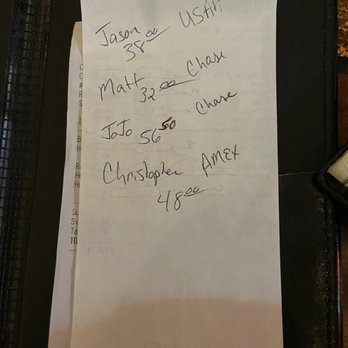 Jason USAA
38 00
Matt Chase
32 00
JoJo Chase
56 50
Christopher AMEX
48 00